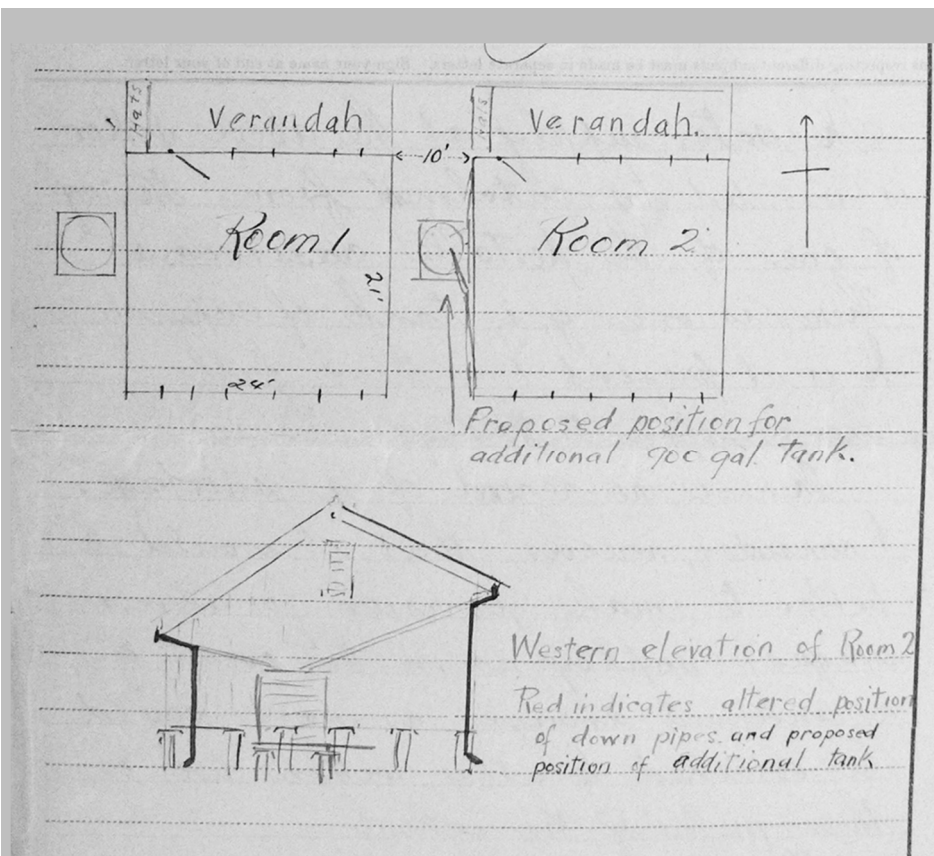 Hats
Verandah
Hats
Verandah.
10'
Room 1
Room 2
21'
24'
Proposed position for
additional 900 gal. Tank.
Western elevation of Room 2
Red indicates altered position
of down pipes. and proposed
position of additional tank